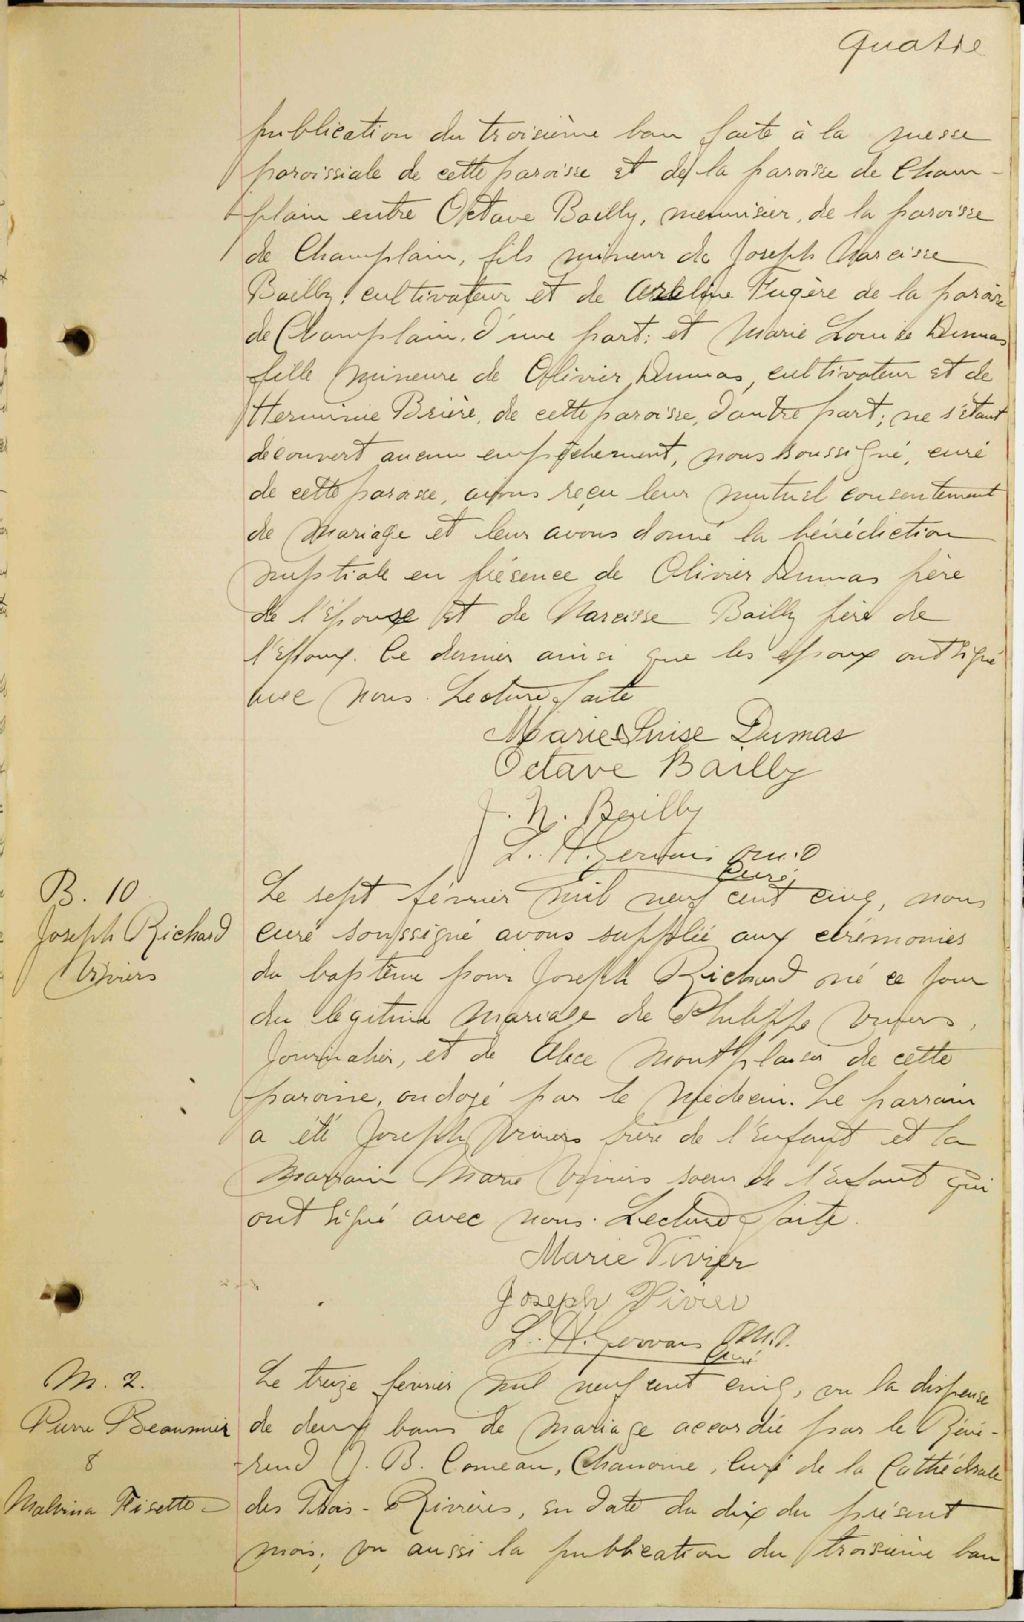 Quatre
publication du troisième ban faite à la messe
paroissiale de cette paroisse et de la paroisse de Cham-
plain entre Octave Bailly, menuisier, de la paroisse
de Champlain, fils mineur de Joseph Narcisse
Bailly, cultivateur et de Fugère de la paroisse
de Champlain, d'une part; et Marie Louise Dumas
fille mineure de Olivier Dumas, cultivateur et de
Hermine Brière, de cette paroisse, d'autre part; ne s'étant
découvert aucun empêchement, nous soussigné, curé
de cette paroisse, avons reçu leur mutuel consentement
de mariage et leur avons donné la bénédiction
nuptiale en présence de Olivier Dumas père
de l'épouse et de Narcisse Bailly père de
l'époux. Ce dernier ainsi que les époux ont signé
avec nous. Lecture faite
Marie Louise Dumas
Octave Bailly
J. N. Bailly
L. H. Gervais
Curé
B. 10
Joseph Richard
Viviers
Le sept février mil neuf cent cinq, nous
curé soussigné avons supplié aux cérémonies
du baptême pour Joseph Richard né ce jour
du légitime mariage de Philippe Viviers,
journalier, et de Alice Montplaisir de cette
paroisse, ondoyé par le médecin. Le parrain
a été Joseph Viviers frère de l'enfant et la
marraine Marie Viviers soeur de l'enfant qui
ont signé avec nous. Lecture faite.
Marie Vivier
Joseph Vivier
L. H. Gervais
Curé
M. 2.
Pierre Beaumier
&
Malvina Frisette
Le treize février mil neuf cent cinq, vu la dispense
de deux bans de mariage accordée par le Révé-
rend J. B. Comeau, Chanoine, Curé de la Cathédrale
des Trois-Rivières, en date du dix du présent
mois; vu aussi la publication du troisième ban